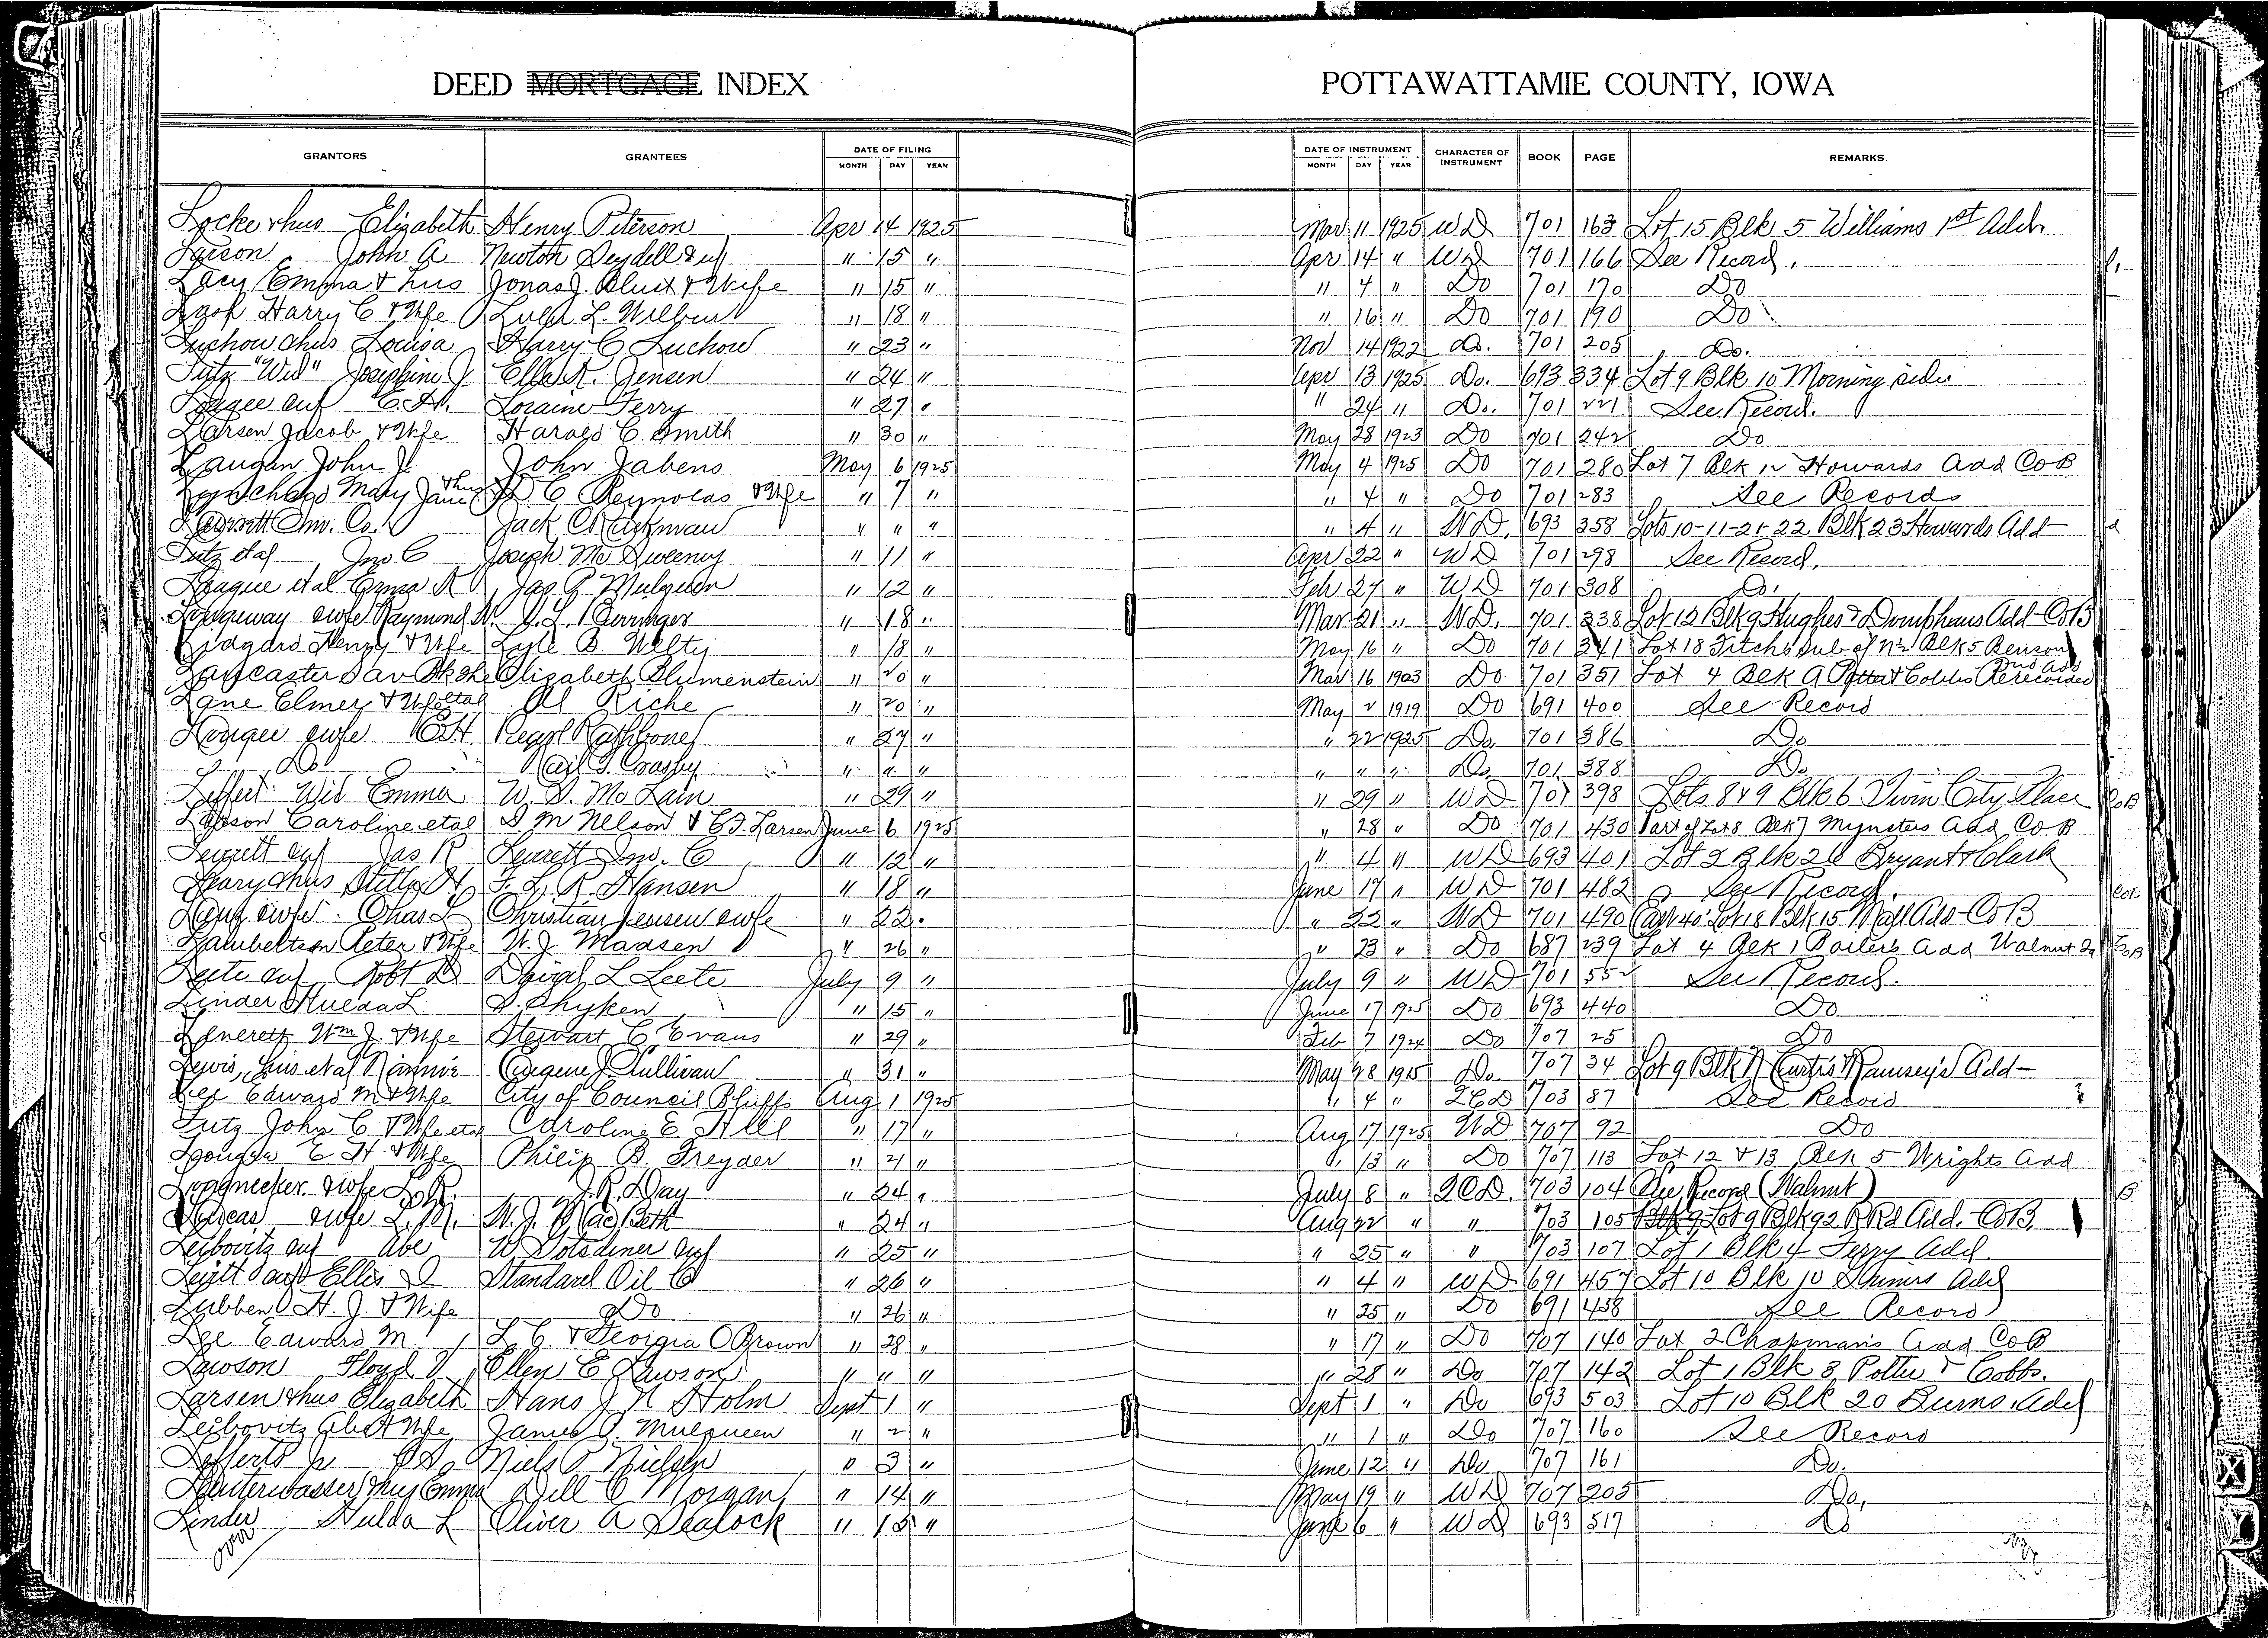 DEED MORTGAGE INDEX
POTTAWATTAMIE COUNTY, IOWA
GRANTORS GRANTEES DATE OF FILING MONTH DAY YEAR DATE OF INSTRUMENT MONTH DAY YEAR CHARACTER OF INSTRUMENT BOOK PAGE REMARKS.
Locke & hus Elizabeth Henry Peterson Apr 14 1925 Mar 11 1925 WD 701 163 Lot 15 Blk 5 Williams 1st Addn
Larson John A Newton Seydell & wf " 15 " Apr 14 " WD 701 166 See Record.
Lacy Emma & hus Jonas J. & Wife " 15 " " 4 " Do 701 170 Do
Lash Harry C & Wife Lula L. Wilburn " 18 " " 16 " Do 701 190 Do
Luchow & hus Louisa Harry C Luchow " 23 " Nov 14 1922 Do. 701 205 Do.
Lutz "Wid" Josephine J Ella K. Jensen " 24 " Apr 13 1925 Do. 693 334 Lot 9 Blk 10 Morning side
Lougee & wf E. H. Loraine Terry " 27 " " 24 " Do. 701 221 See Record.
Larsen Jacob & Wife Harald C. Smith " 30 " May 28 1923 Do 701 242 Do
Langan John J. John Jabens May 6 1925 May 4 1925 Do 701 280 Lot 7 Blk 12 Howards Add Co B
Mary Jane & hus C Reynolds & Wife " 7 " " 4 " Do 701 283 See Records
Leverett Inv. Co. Jack " " " " 4 " W.D. 693 358 Lots 10-11-21-22 Blk 23 Howards Add
Lutz et al Jno C Joseph McSweeny " 11 " Apr 22 " WD 701 298 See Record.
League et al Erma R Jas P. Mulqueen " 12 " Feb 27 " WD 701 308 Do.
& wife Raymond W. " 18 " Mar 21 " W.D. 701 338 Lot 12 Blk 9 Hughes & Doniphans Add - CoB
Lidgard Henry & Wife Lyle B. Welty " 18 " May 16 " Do 701 341 Lot 18 Fitchs Sub of N½ Blk 5 Benson 2nd Add
Lancaster Sav Bk The Elizabeth Blumenstein " 20 " Mar 16 1903 Do 701 351 Lot 4 Blk A Potter & Cobbs Rerecorded
Lane Elmer & Wife et al Al Riche " 20 " May 2 1919 Do 691 400 See Record
Lougee & wife E.H. Pearl Rathbone " 27 " " 22 1925 Do. 701 386 Do
Do Gail T. Crosby " " " " " " Do. 701 388 Do
Leffert Wid Emma W. S. McLain " 29 " " 29 " WD 701 398 Lots 8 & 9 Blk 6 Twin City Place
Larson Caroline et al S M Nelson & C.F. Larsen June 6 1925 " 28 " Do 701 430 Part of Lot 8 Blk 7 Mynsters Add Co B
Leverett & wf Jas R Leverett Inv. Co " 12 " " 4 " WD 693 401 Lot 2 Blk 26 Bryant & Clark
Leary & hus Stella H. F. L. R. Hansen " 18 " June 17 " WD 701 482 See Record.
Lang & wife Chas L Christian Jensen & wife " 22 " " 22 " WD 701 490 E 40' Lot 18 Blk 15 Add - CoB
Lambertson Peter & Wife W. J. Madsen " 26 " " 23 " Do 687 239 Lot 4 Blk 1 Add Walnut Ia
Leete & wf Robt D David L Leete July 9 " July 9 " WD 701 552 See Record.
Linder Hulda L. S. Shyken " 15 " June 17 1925 Do 693 440 Do
Leverett Wm J. & Wife Stewart C Evans " 29 " Feb 7 1924 Do 707 25 Do
Lewis, hus et al Nannie Eugene J. Sullivan " 31 " May 28 1915 Do. 707 34 Lot 9 Blk N Curtis & Ramsey's Add -
Lee Edward M & Wife City of Council Bluffs Aug 1 1925 " 4 " QCD 703 87 See Record
Lutz John C & Wife et al Caroline E Hill " 17 " Aug 17 1925 WD 707 92 Do
Lougee E H & Wife Philip B. Treyder " 21 " " 13 " Do 707 113 Lot 12 & 13 Blk 5 Wrights Add
Longnecker & wife L. R. J. R. Day " 24 " July 8 " QCD. 703 104 See Record (Walnut)
Lucas & wife L. M. W. J. MacBeth " 24 " Aug 22 " " 703 105 Lot 9 Blk 92 R Rd Add. - CoB.
Leibovitz & wf Abe W Sotsdiner & wf " 25 " " 25 " " 703 107 Lot 1 Blk 4 Terry Add.
Levitt & wf Ellis I Standard Oil Co " 26 " " 4 " WD 691 457 Lot 10 Blk 10 Add
Lubben H. J. & Wife Do " 26 " " 25 " Do 691 458 See Record
Lee Edward M L. C. & Georgia O Brown " 28 " " 17 " Do 707 140 Lot 2 Chapman's Add Co B
Lawson Floyd V. Ellen E Lawson " " " " 28 " Do 707 142 Lot 1 Blk 3 Potter & Cobbs.
Larsen & hus Elizabeth Hans J N Holm Sept 1 " Sept 1 " Do 693 503 Lot 10 Blk 20 Burns Add
Leibovitz Abe & Wife James P. Mulqueen " 2 " " 1 " Do 707 160 See Record
Lefferts Jr C S. Niels P Nielsen " 3 " June 12 " Do 707 161 Do.
Lauterwasser & hus Emma Dell C Morgan " 14 " May 19 " WD 707 205 Do.
Linder Hulda L Oliver A Sealock " 15 " June 6 " WD 693 517 Do
over